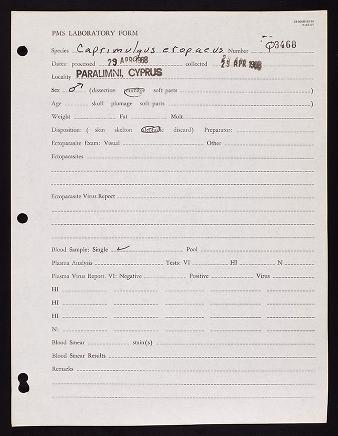 PMS LABORATORY FORM
Species Caprimulgus europaeus Number Q3468
Dates: processed 29 APR 1968 collected 29 APR 1968
Locality PARALIMNI, CYPRUS
Sex ♂ (dissection plumage soft parts )
Age skull plumage soft parts )
Weight Fat Molt
Disposition: ( skin skelton alcoholic discard) Preparator:
Ectoparasite Exam: Visual Other
Ectoparasites
Ectoparasite Virus Report
Blood Sample: Single ✓ Pool
Plasma Analysis Tests: VI HI N
Plasma Virus Report. VI: Negative Positive Virus
HI
HI
HI
N:
Blood Smear stain(s)
Blood Smear Results
Remarks